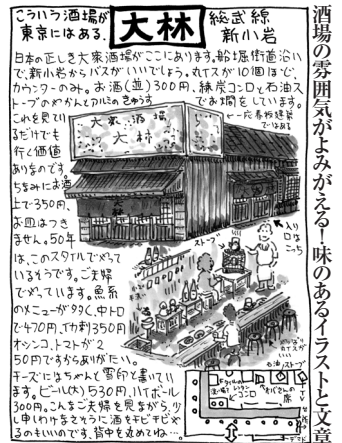 酒場の雰囲気がよみがえる！味のあるイラストと文章
こういう酒場が
東京にはある、
大林
総武線
新小岩
日本の正しき大衆酒場がここにあります。船堀街道沿い
で、新小岩からバスがいいでしょう。丸イスが10個ほど、
カウンターのみ。お酒(並)300円、練炭コンロと石油ス
トーブのやかんとアルミのきゅうす
でお燗をしています。
これを見てい
るだけでも
行く価値
ありなのです。
ちなみにお酒
上で350円、
お皿はつき
ません。50年
は、このスタイルでやって
いるそうです。ご夫婦
でやっています。魚系
のメニューが多く、中トロ
で470円、イカ刺350円
オシンコ、トマトが2
50円でもありがたい。
チーズにはちゃんと雪印と書いてい
ます。ビール(大)530円、ハイボール
300円。こんなご夫婦を見ながら、少
し申しわけなさそうに酒をチビチビや
るのもいいのです、背中を丸めてね…
大衆酒場
大林
一応看板建築
ではある
入り口は
こっち
ストーブ
石油ストーブ
コンロ